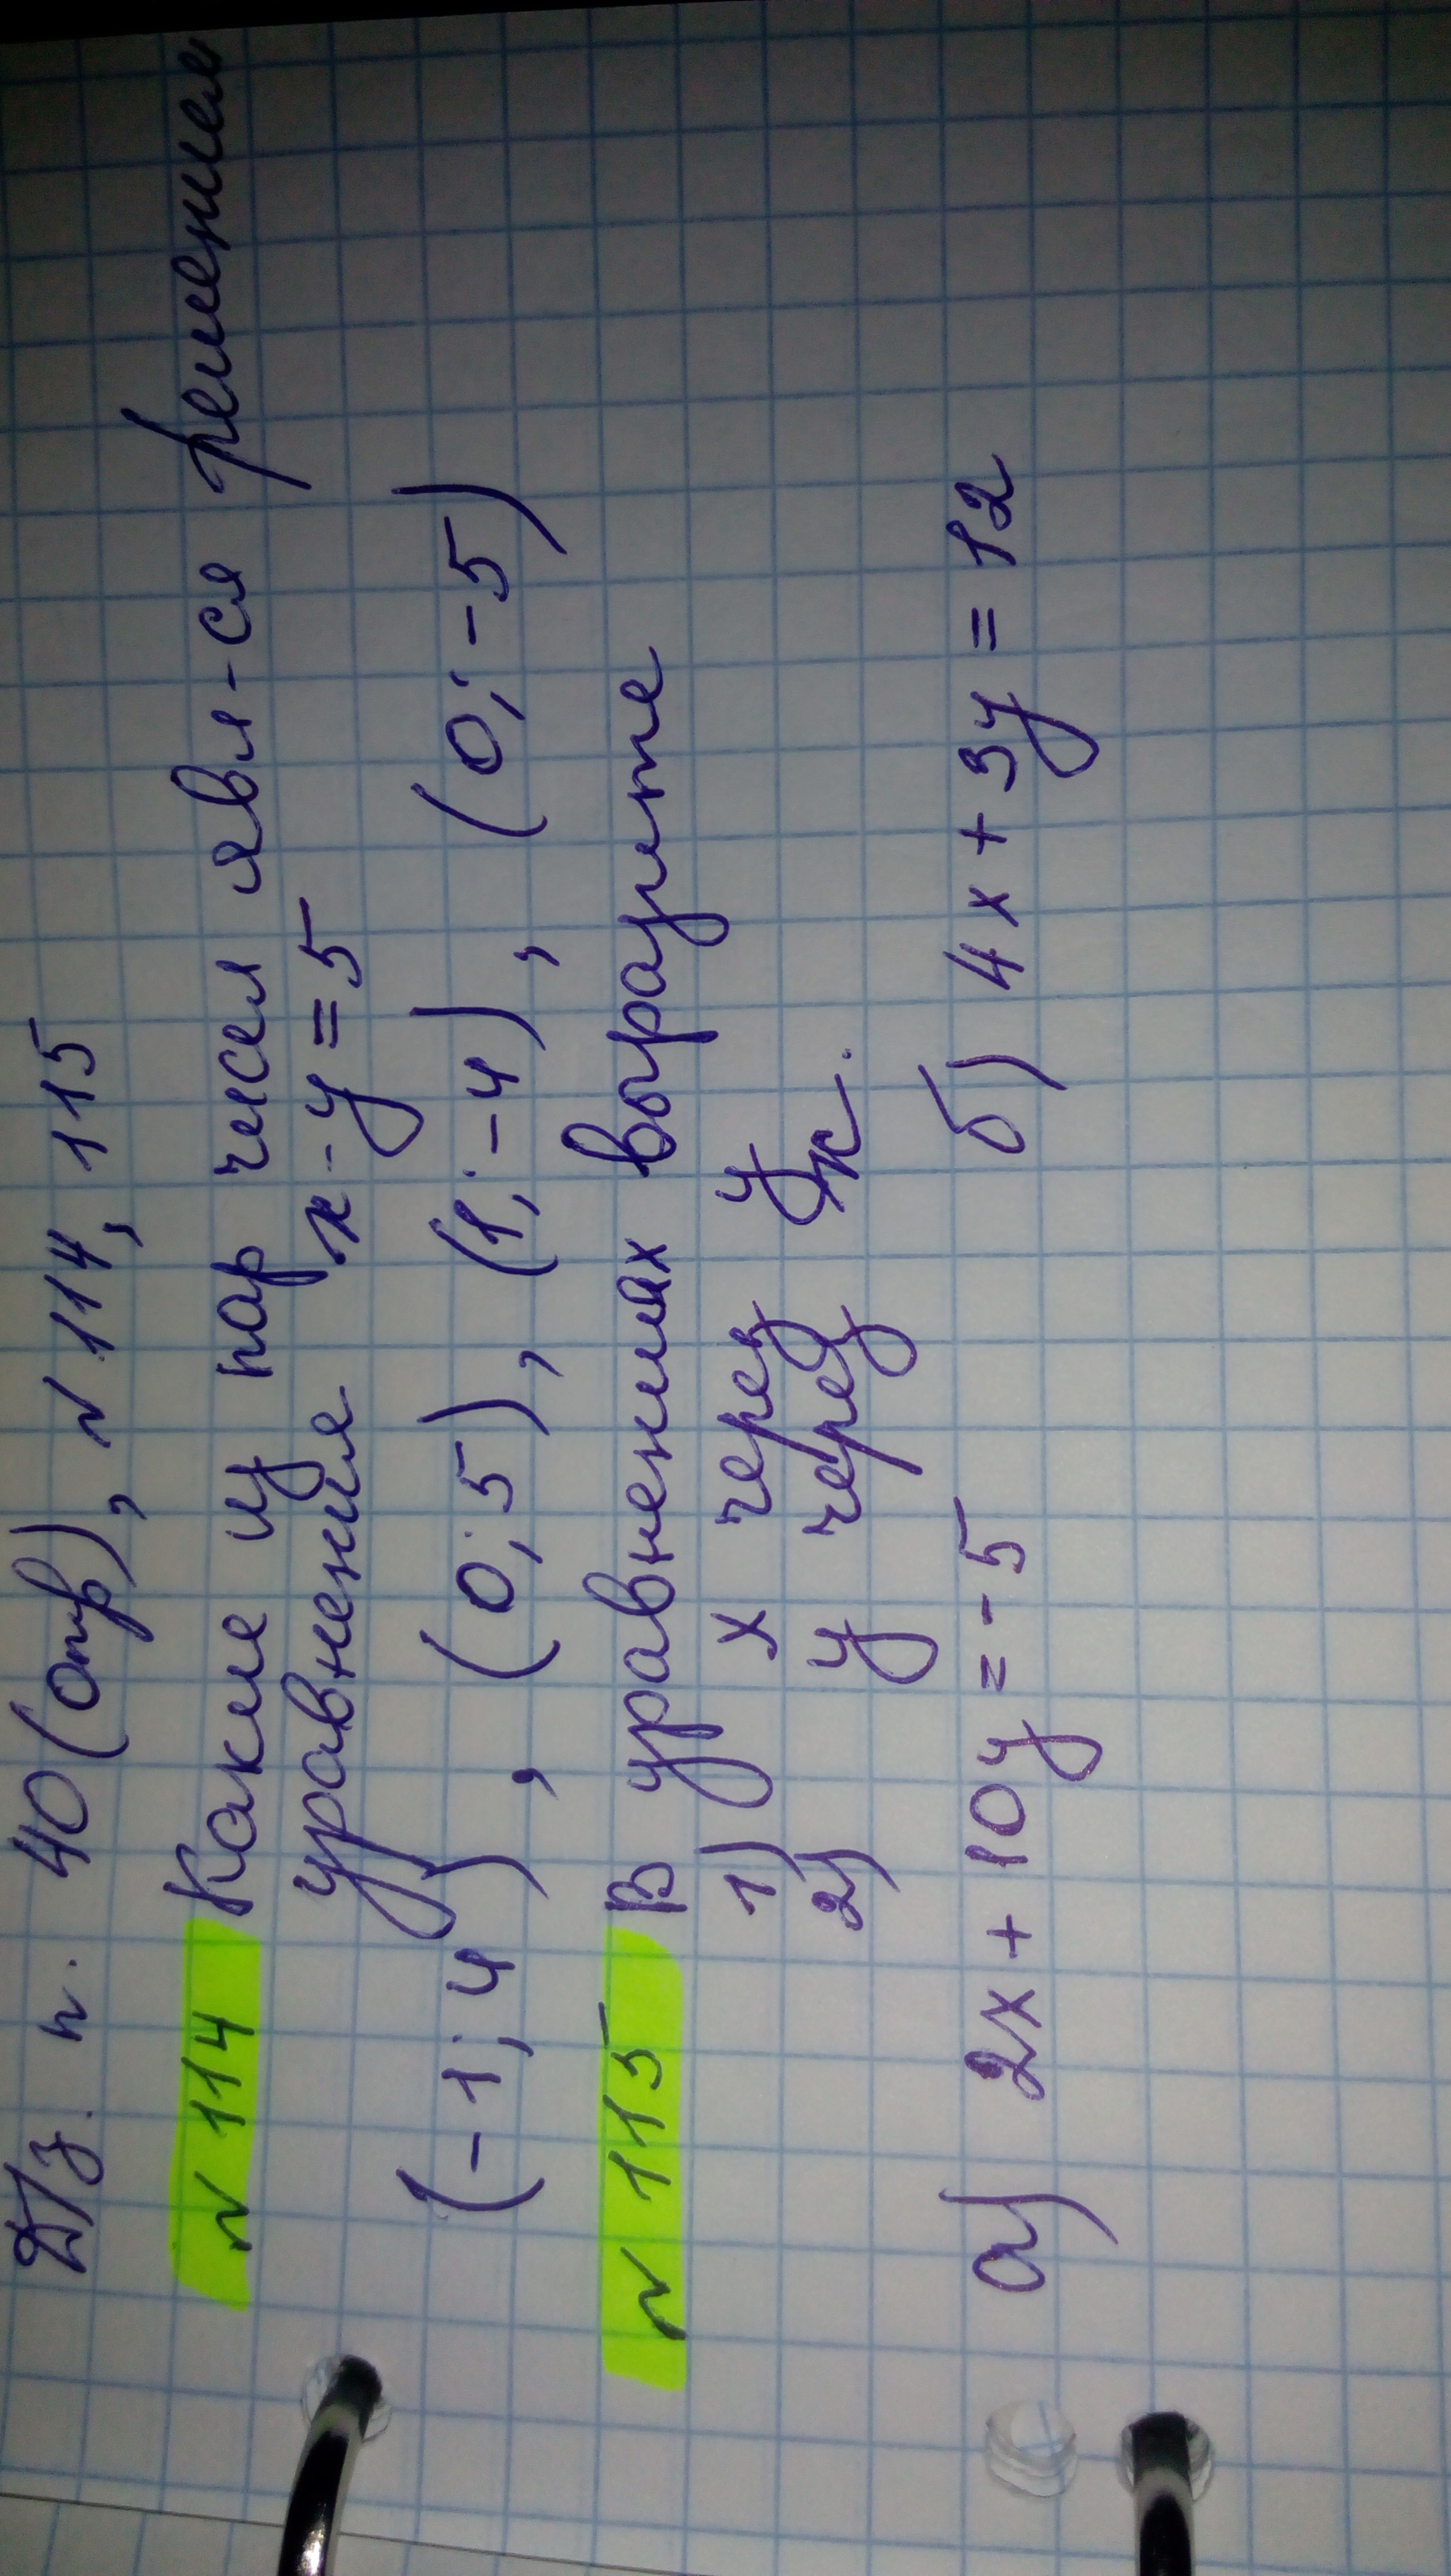 Д/з. п. 40 (отр), N 114, 115
N 114 Какие из пар чисел явл-ся решением
уравнения x - y = 5
(-1; 4), (0; 5), (1; -4), (0; -5)
N 115 В уравнениях выразите
1) x через y
2) y через x.
а) 2x + 10y = -5 б) 4x + 3y = 12